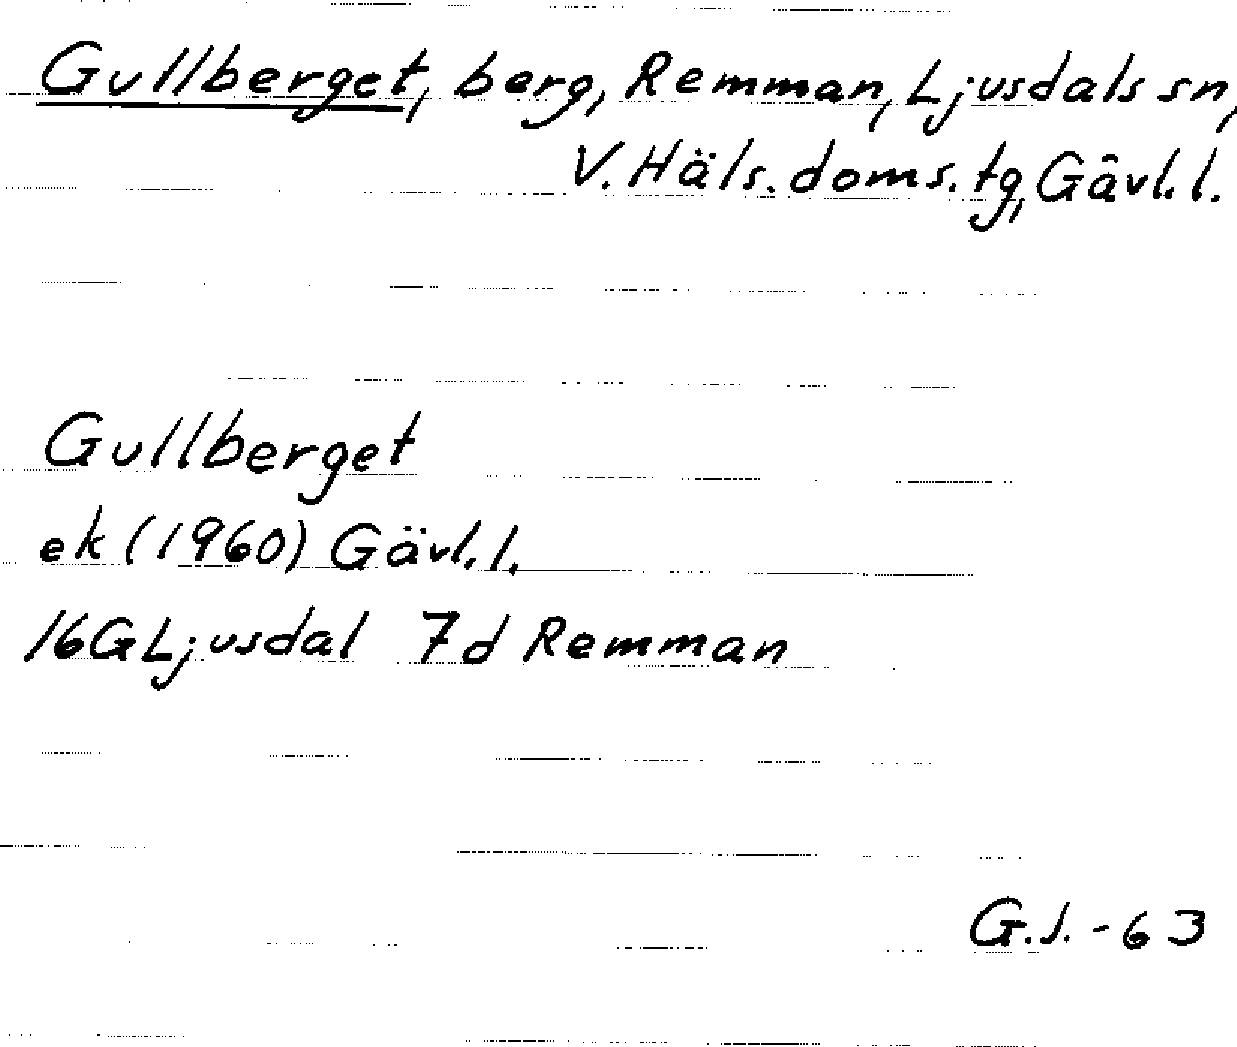 Gullberget, berg, Remman, Ljusdals sn,
V. Häls. doms. tg, Gävl. l.
Gullberget
ek (1960) Gävl. l.
16G Ljusdal 7d Remman
G.J. - 63